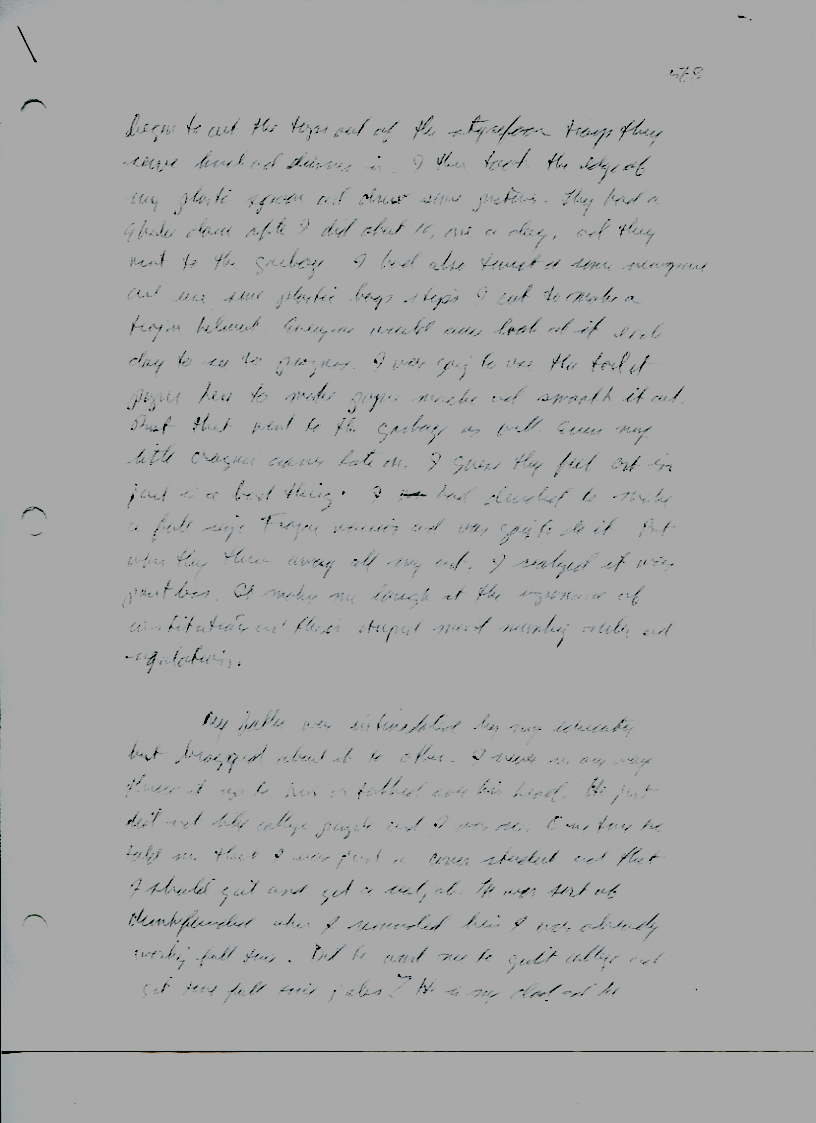 578
Began to cut the tops out of the styrofoam trays they
serve lunch and dinner in. I then took the edge of
my plastic spoon and drew some pictures. They had a
shake down after I did about 10, one a day, and they
went to the garbage. I had also twisted some newspaper
and use some plastic bags strips I cut to make a
trojan helmet. Everyone would look at it each
day to see the progress. I was going to use the toilet
paper here to make paper mache and smooth it out.
But that went to the garbage as well even my
little later on. I guess they feel art in
jail is a bad thing. I had decided to make
a full size Trojan warrior and was going to do it. But
when they threw away all my art, I realized it was
pointless. It makes me laugh at the ignorance of
institutions and their stupid mind numbing rules and
regulations.
My father was intimidated by my education
but bragged about it to others. I never in any way
threw it up to him or talked over his head. He just
did not like college people and I was one. One time he
told me that I was just a career student and that
I should quit and get a real job. He was sort of
dumbfounded when I reminded him I was already
working full time. Did he want me to quit college and
get two full time jobs? He is my dad and he